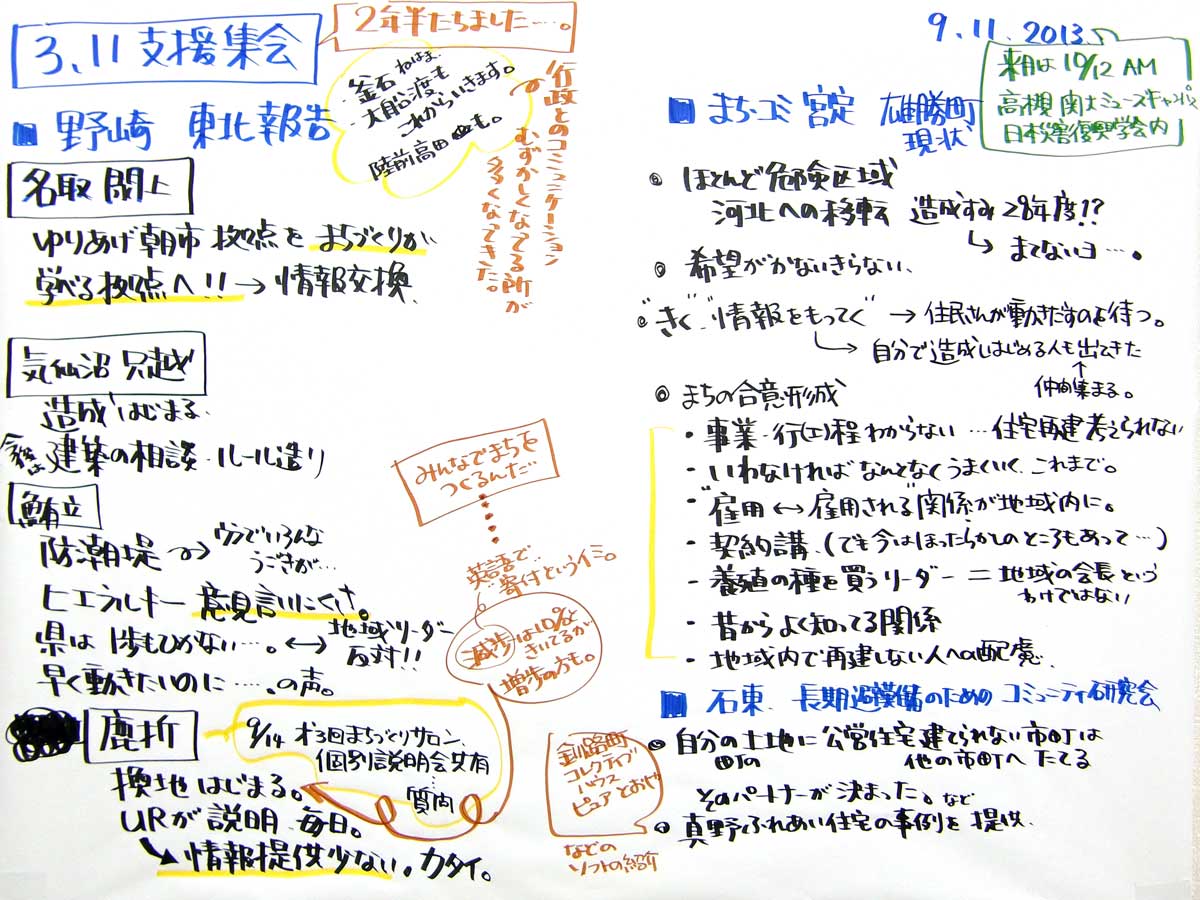 3.11 支援集会
2年半たちました….。
■ 野崎 東北報告
・釜石 ねはま
・大船渡も
これからいきます。
陸前高田も。
行政とのコミュニケーション
むずかしくなってる所が
多くなってきた。
名取 閖上
ゆりあげ朝市 拠点を まちづくりが
学べる拠点へ!! → 情報交換
気仙沼 只越
造成はじまる
今後は 建築の相談・ルール造り
鮪立
防潮堤 → ウラでいろんな
うごきが…
ヒエラルキー 意見言いにくさ。
県は1歩もひかない…. ↔ 地域リーダー
反対!!
早く動きたいのに….の声。
みんなでまちを
つくるんだ
英語で
寄付というイミ。
減歩は10%と
きいてるが
増歩の方も。
鹿折
9/14 オ3回まちづくりサロン、
個別説明会共有
質問
換地はじまる。
URが説明 毎日。
情報提供少ない。カタイ。
釧路町
コレクティブ
ハウス
ピュアとおや
などの
ソフトの紹介
9.11.2013
来月は10/12 AM
高槻 関大ミューズキャンパス
日本災害復興学会内
■ まち・コミ 宮定 雄勝町
現状
◎ ほとんど危険区域
河北への移転 造成すみ28年度!?
↳ まてないヨ….
◎ 希望がかないきらない、
◎ "きく" "情報をもってく" → 住民さんが動きだすのを待つ。
→ 自分で造成しはじめる人も出てきた
↑
仲間集まる。
◎ まちの合意形成
・事業・行(工)程 わからない …住宅再建考えられない
・いわなければなんとなくうまくいく これまで。
・"雇用 ↔ 雇用される"関係が地域内に。
・契約講 (でも今はほったらかしのところもあって…)
・養殖の種を買うリーダー = 地域の会長という
わけではない
・昔からよく知ってる関係
・地域内で再建しない人への配慮
■ 石東 長期避難備のためのコミュニティ研究会
◎ 自分の土地に公営住宅建てられない市町は
町の 他の市町へたてる
そのパートナーが決まった。など
◎ 真野ふれあい住宅の事例を提供